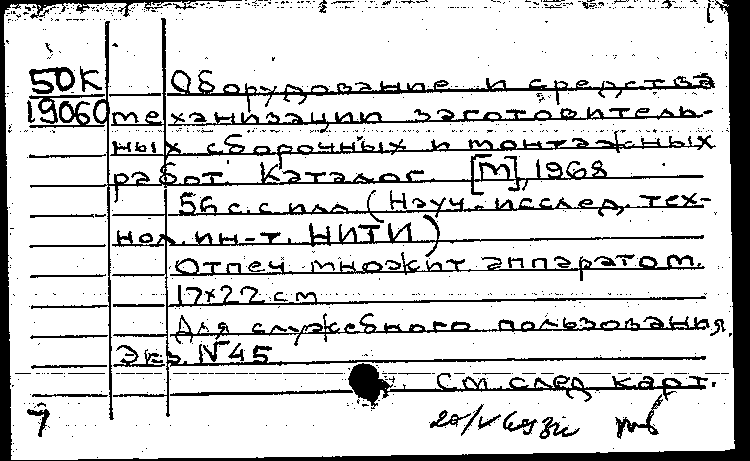 50К Оборудование и средства
19060 механизации заготовитель-
ных сборочных и монтажных
работ. Каталог. [М], 1968
56 с. с илл (Науч.-исслед. тех-
нол. ин-т. НИТИ)
Отпеч. множит. аппаратом.
17x22 см
Для служебного пользования.
Экз. N 45
См. след. карт.